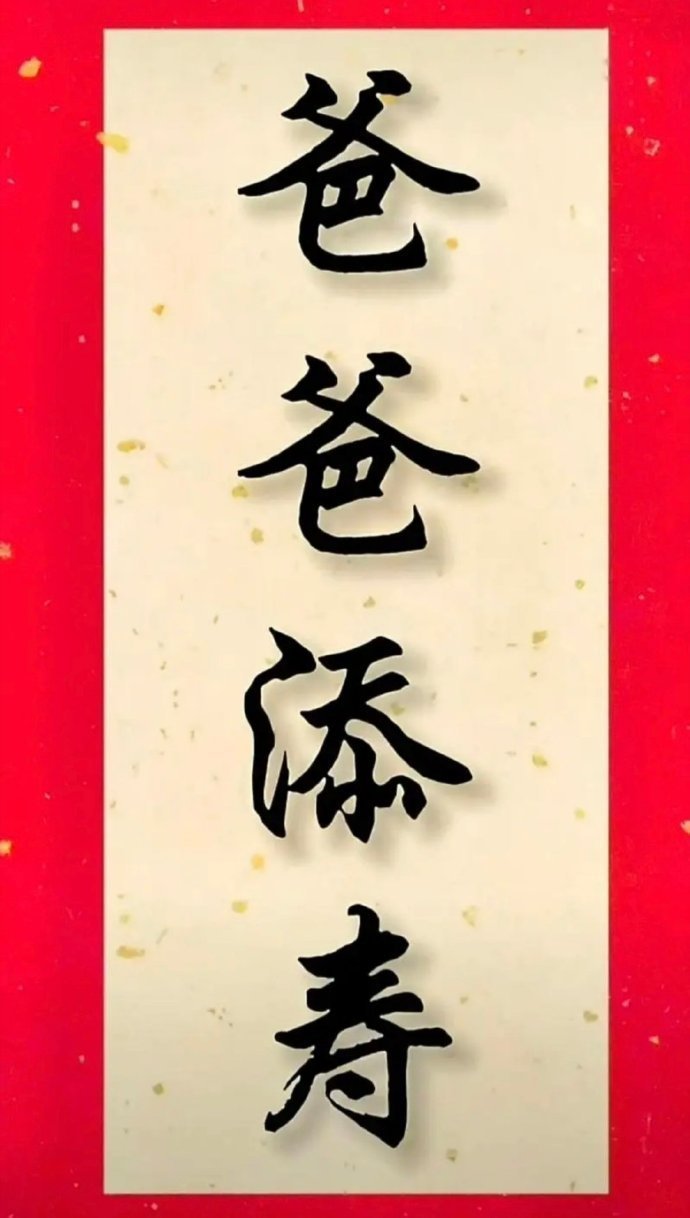 爸爸添寿